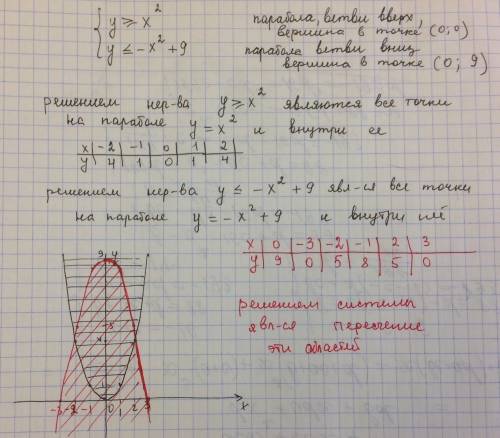 { y ⩾ x²
y ≤ -x² + 9
парабола, ветви вверх,
вершина в точке (0; 0)
парабола ветви вниз
вершина в точке (0; 9)
решением нер-ва y ⩾ x² являются все точки
на параболе y = x² и внутри ее
x | -2 | -1 | 0 | 1 | 2
y | 4 | 1 | 0 | 1 | 4
решением нер-ва y ≤ -x² + 9 явл-ся все точки
на параболе y = -x² + 9 и внутри
x | 0 | -3 | -2 | -1 | 2 | 3
y | 9 | 0 | 5 | 8 | 5 | 0
решением системы
явл-ся пересечение
эти областей
9 y
-3 -2 -1 0 1 2 3 x